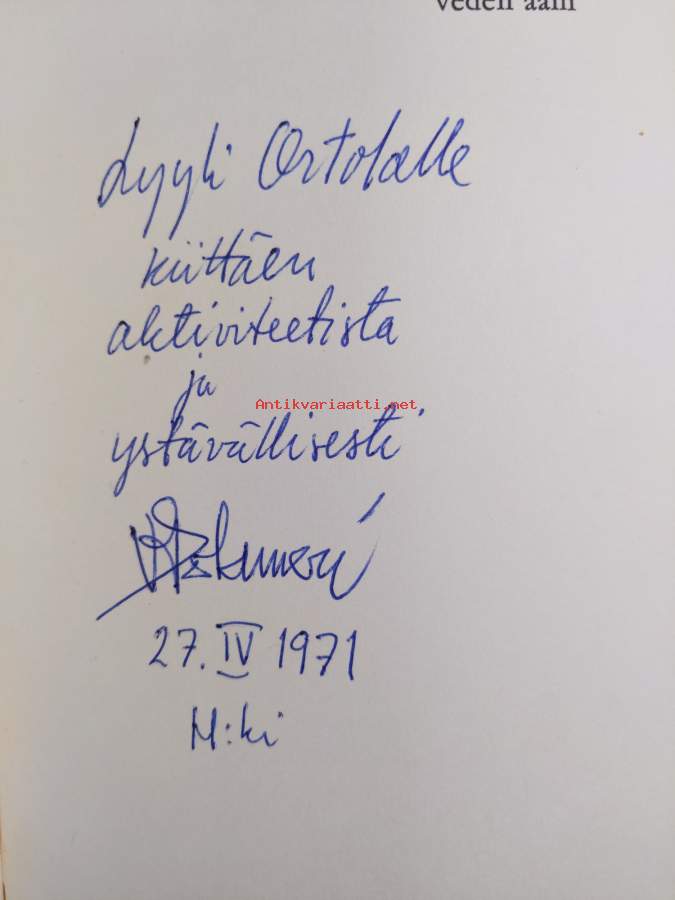 veden ääni
Lyyli Ortolalle
kiittäen
aktiviteetista
ja
Antikvariaatti.net
ystävällisesti
27. IV 1971
H:ki